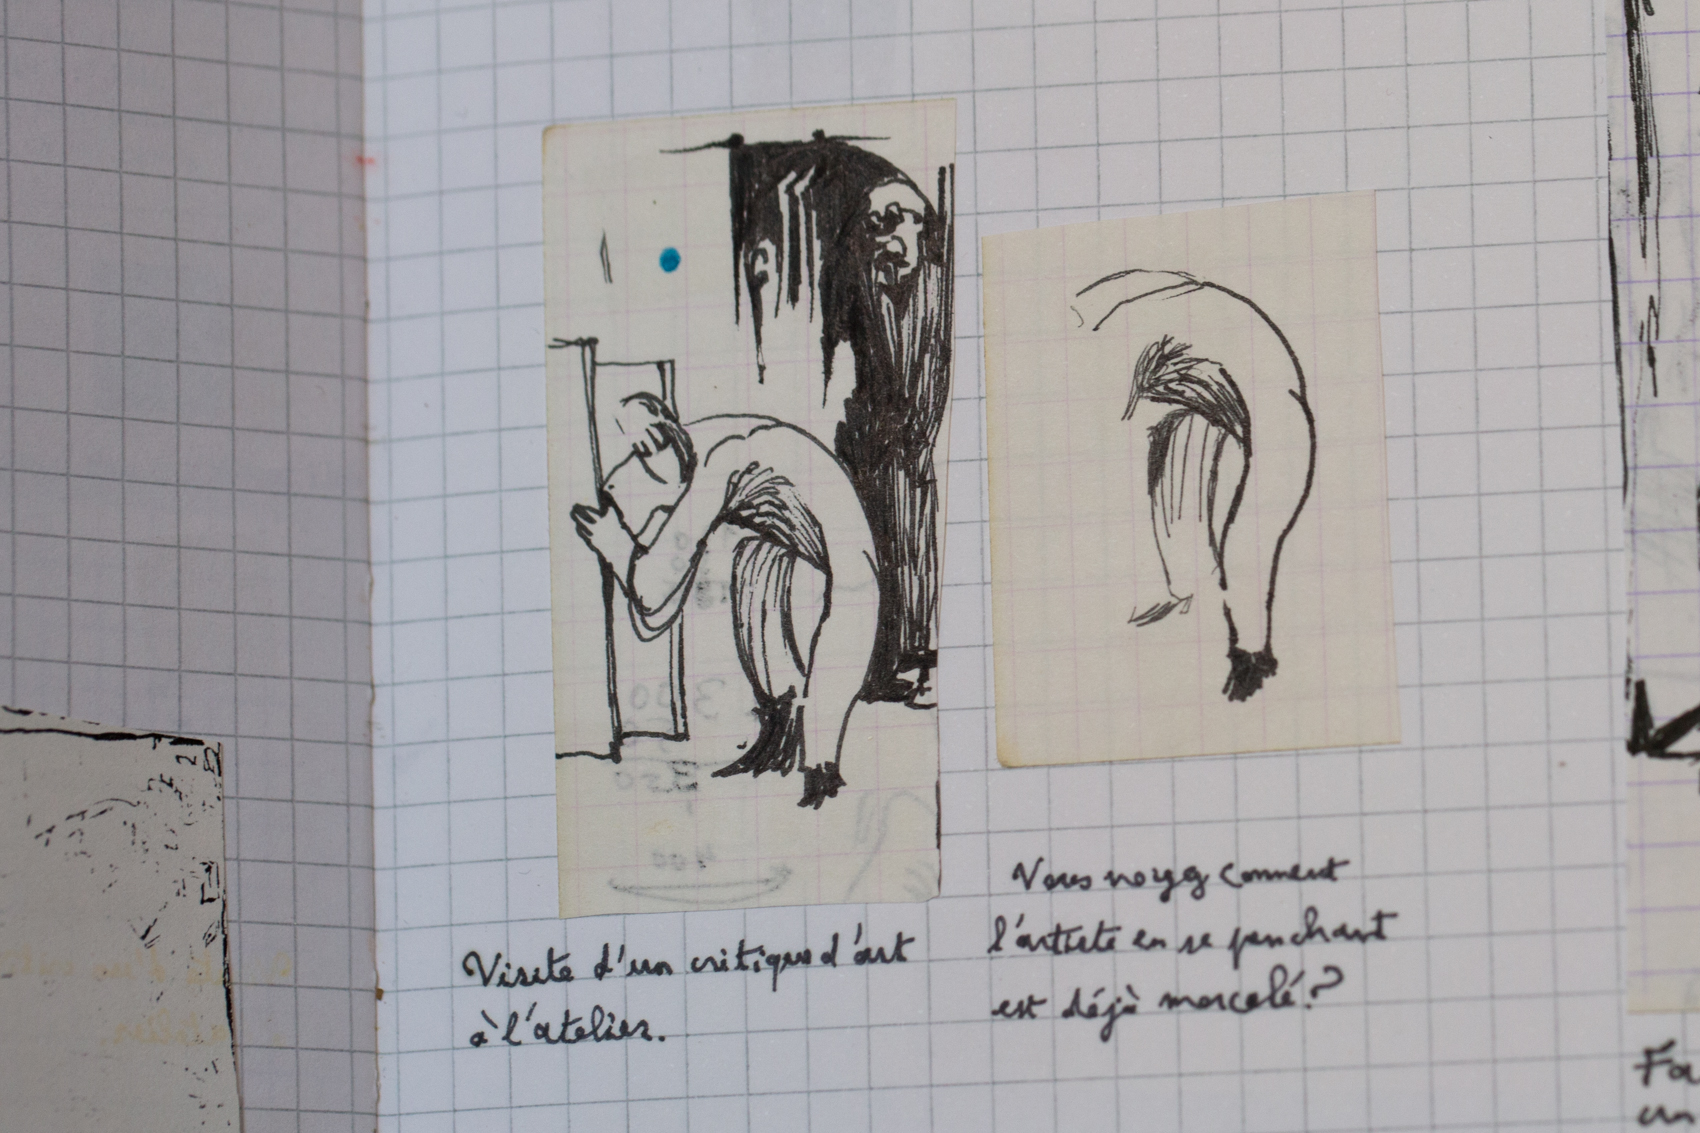 Visite d'un critique d'art
à l'atelier.
Vous voyez comment
l'artiste en se penchant
est déjà morcelé?